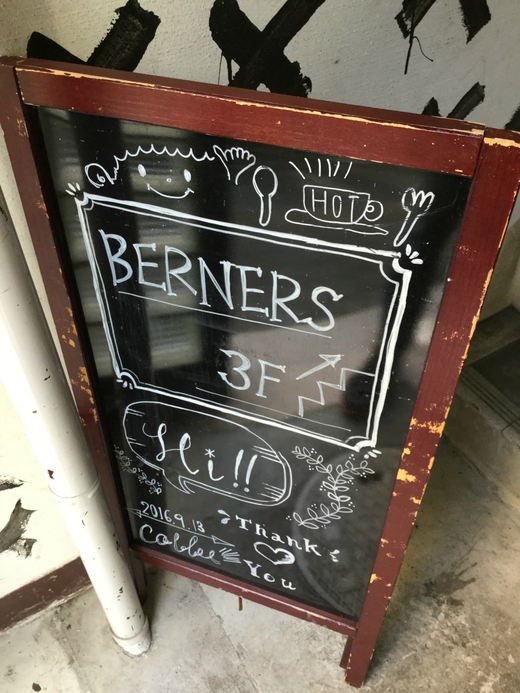 HOT
BERNERS
3F
Hi!!
2016.9.13
Coffee
Thank
You